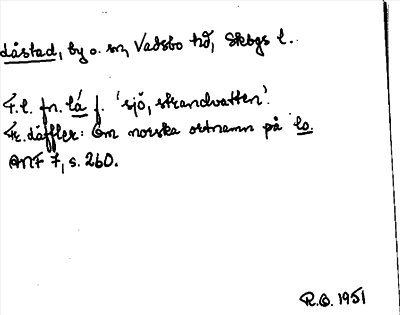 Låstad, by o. sn, Vadsbo hd, Skbgs l.
F.l. fn. lá f. 'sjö, strandvatten'.
Fr. Läffler: Om norska ortnamn på lo.
ANF 7, s. 260.
R.O. 1951